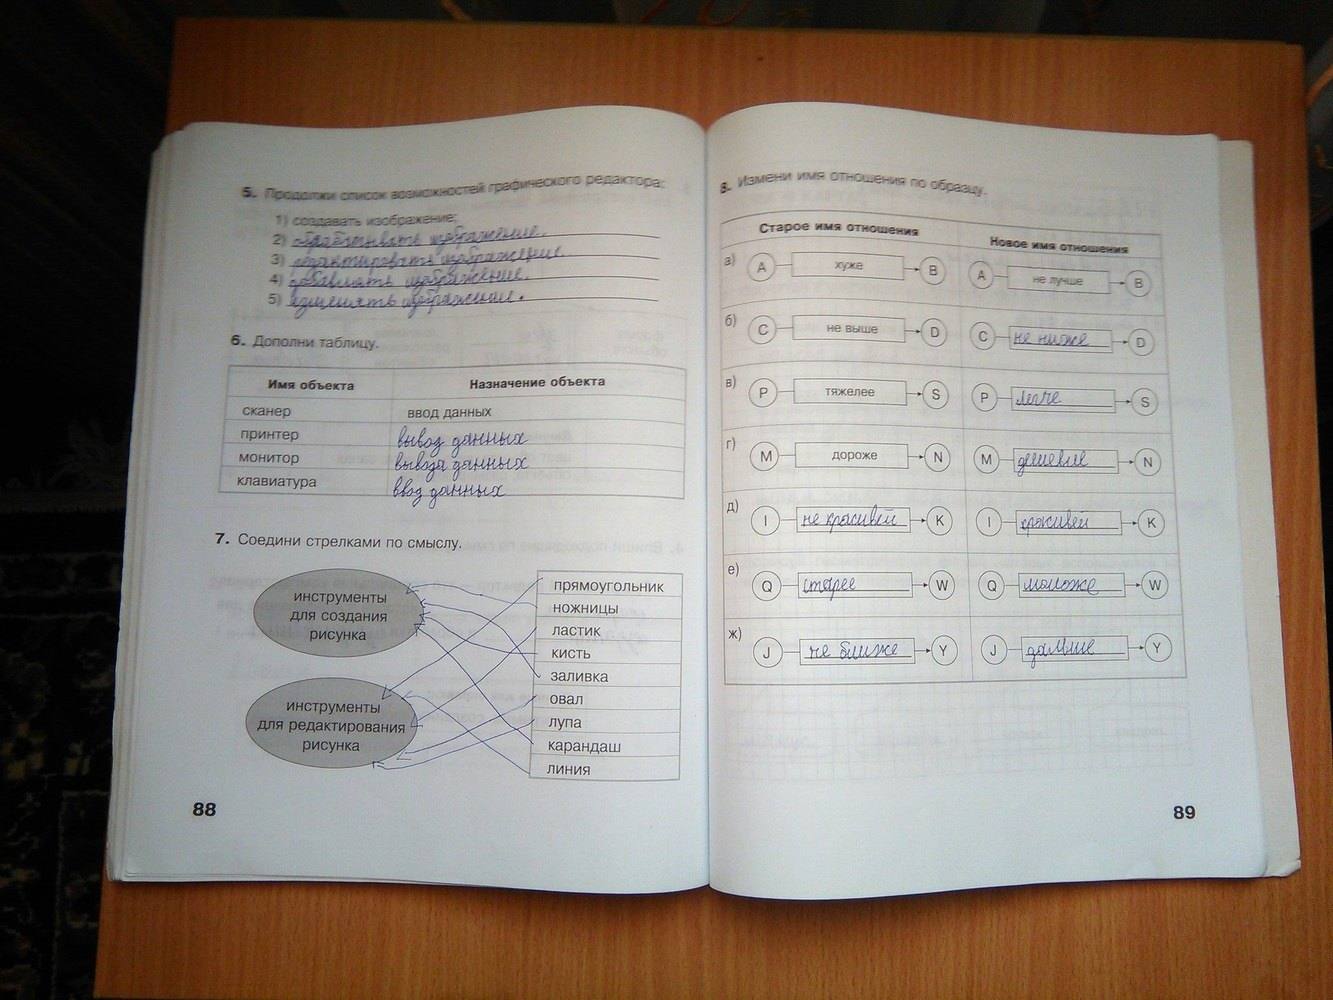 5. Продолжи список возможностей графического редактора:
1) создавать изображение;
2) обрабатывать изображение.
3) редактировать изображение.
4) добавлять изображение.
5) изменять изображение.
6. Дополни таблицу.
Имя объекта Назначение объекта
сканер ввод данных
принтер вывод данных
монитор вывода данных
клавиатура ввод данных
7. Соедини стрелками по смыслу.
инструменты
для создания
рисунка
инструменты
для редактирования
рисунка
прямоугольник
ножницы
ластик
кисть
заливка
овал
лупа
карандаш
линия
88
8. Измени имя отношения по образцу.
Старое имя отношения Новое имя отношения
а) A хуже B A не лучше B
б) C не выше D C не ниже D
в) P тяжелее S P легче S
г) M дороже N M дешевле N
д) I не красивей K I красивей K
е) Q старее W Q моложе W
ж) J не ближе Y J дальше Y
89